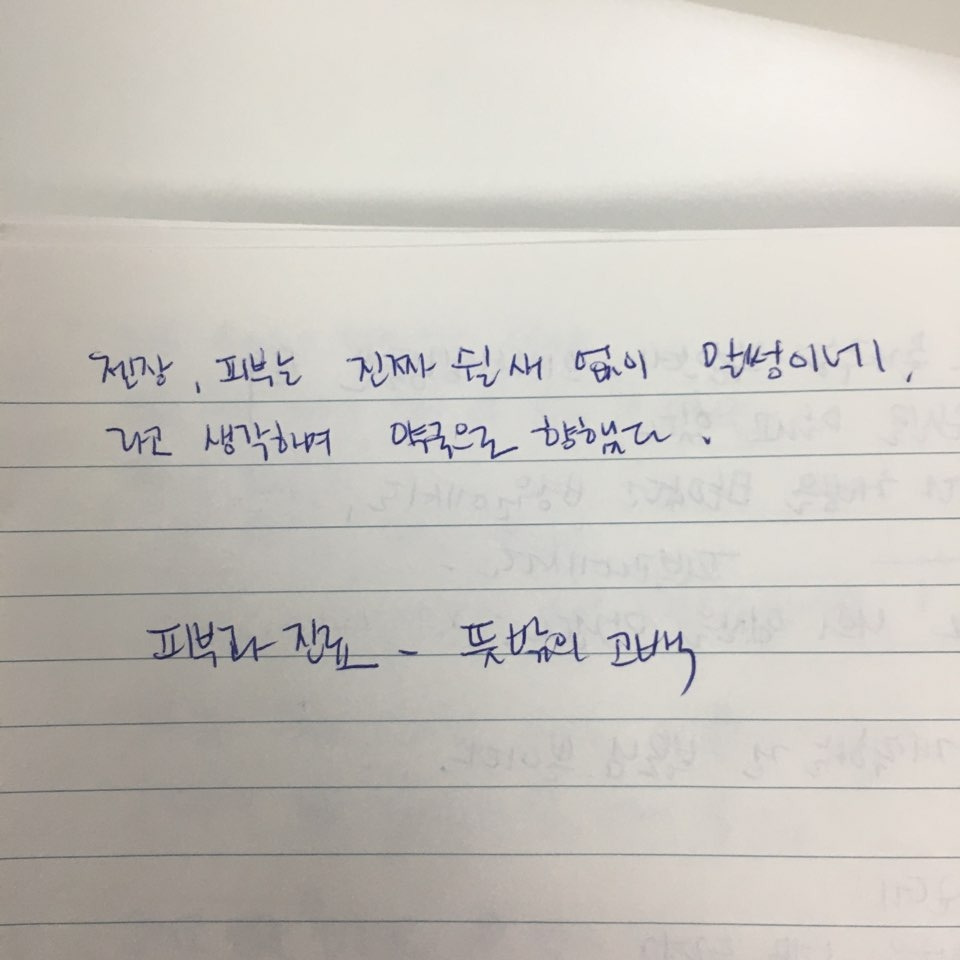 젠장, 피부는 진짜 쉴 새 없이 말썽이네,
라고 생각하며 약국으로 향했다.
피부과 진료 - 뜻밖의 고백